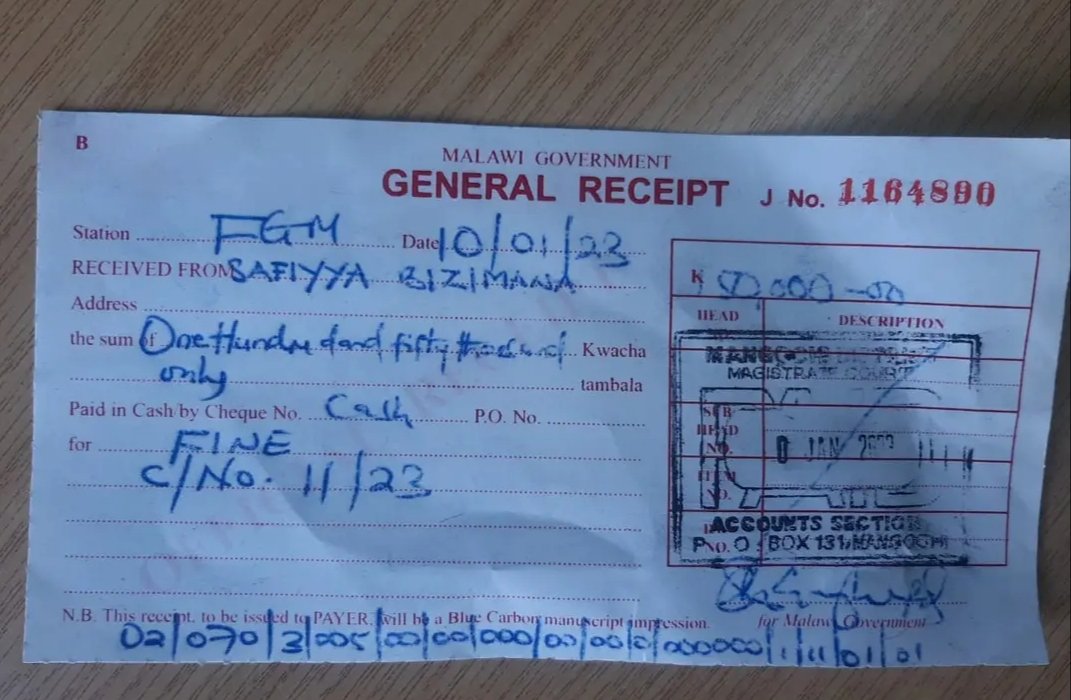 B
MALAWI GOVERNMENT
GENERAL RECEIPT J No. 1164890
Station FGM Date 10/01/23
RECEIVED FROM SAFIYYA BIZIMANA
Address
the sum of One Hundred and fifty thousand Kwacha
only tambala
Paid in Cash/by Cheque No. Cash P.O. No.
for FINE
C/No. 11/23
K
HEAD DESCRIPTION
MAGISTRATE COURT
SUB
HEAD
NO. JAN
ITEM
NO.
ACCOUNTS SECTION
P. O. BOX 131, MANGOCHI
NO.
for Malawi Government
N.B. This receipt, to be issued to PAYER, will be a Blue Carbon manuscript impression.
02/070/3/005/00/00/000/00/00/0/000000/1/11/01/01